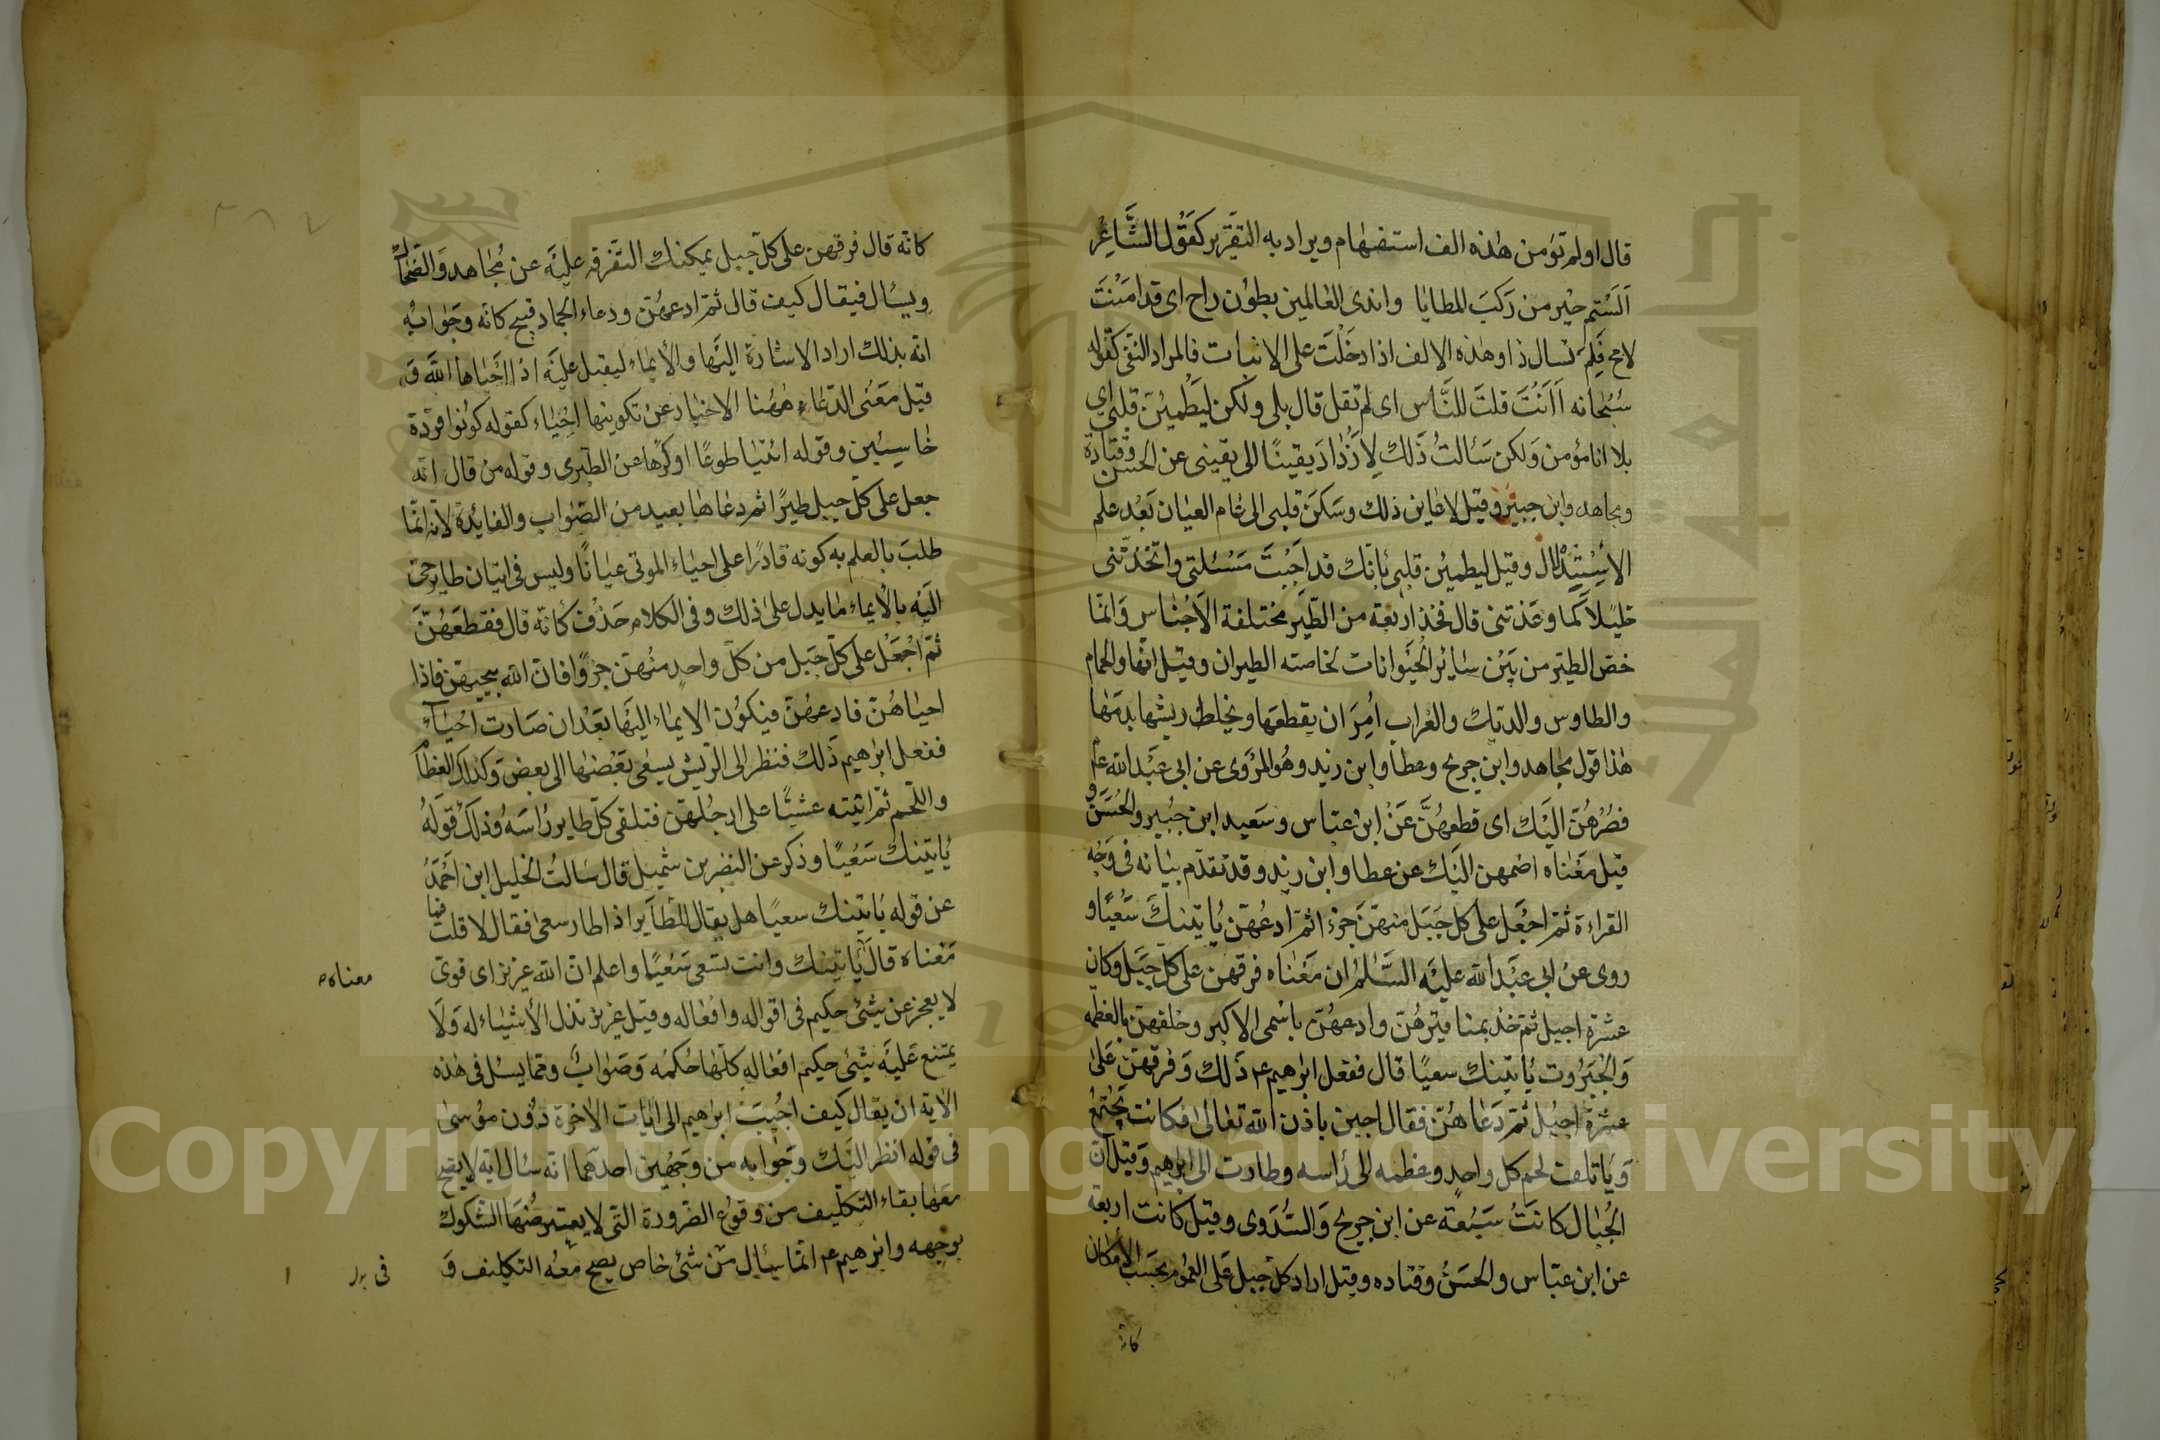 قال اولم تؤمن هذه الف استفهام ويراد به التقرير كقول الشاعر
ألستم خير من ركب المطايا واندى العالمين بطون راح اى قد امنت
لا مح فلم تسال ذا وهذه الالف اذا دخلت على الاثبات فالمراد النفى كقوله
سبحانه أأنت قلت للناس اى لم تقل قال بلى ولكن ليطمئن قلبى اي
بلا انا مؤمن ولكن سألت ذلك لازداد يقينا الى يقينى عن الحسن وقتادة
ومجاهد وابن جبير وقيل لاعاين ذلك وسكن قلبى الى عام العيان بعد علم
الاستدلال وقيل ليطمئن قلبى بانك قد اجبت مسئلتى واتخذتنى
خليلا كما وعدتنى قال فخذ اربعة من الطير مختلفة الاجناس وانما
خص الطير من بين ساير الحيوانات لخاصته الطيران وقيل انها والحمام
والطاوس والديك والغراب امر ان يقطعها ويخلط ريشها بدمها
هذا قول مجاهد وابن جريح وعطا وابن زيد وهو المروى عن ابى عبد الله ع
فصرهن اليك اى قطعهن عن ابن عباس وسعيد ابن جبير والحسن و
قيل معناه اضمهن اليك عن عطا وابن زيد وقد تقدم بيانه فى وجه
القراءة ثم اجعل على كل جبل منهن جزءا ثم ادعهن يأتينك سعيا و
روى عن ابى عبد الله عليه السلم ان معناه فرقهن على كل جبل وكان
عشرة اجبل ثم خذ بمناقيرهن وادعهن باسمى الاكبر وحلفهن بالعظمه
والجبروت يأتينك سعيا قال ففعل ابرهيم ع ذلك وفرقهن على
عشرة اجبل ثم دعاهن فقال اجبن باذن الله تعالى فكانت تجتمع
ويأتلف لحم كل واحد وعظمه الى رأسه وطارت الى ابرهيم وقيل ان
الجبال كانت سبعة عن ابن جريح والسدوى وقيل كانت اربعة
عن ابن عباس والحسن وقتاده وقيل اراد كل جبل على العموم بحسب الامكان
كانه
كانه قال فرقهن على كل جبل يمكنك التفرقه عليه عن مجاهد والضحاك
ويسال فيقال كيف قال ثم ادعهن ودعاء الجماد قبيح كانه وجوابه
انه بذلك اراد الاشارة اليها والأيماء ليقبل عليه اذا احياها الله و
قيل معنى الدعاء ههنا الاخبار عن تكوينها احياء كقوله كونوا قردة
خاسيئين وقوله ائتيا طوعا او كرها عن الطبرى وقوله من قال انه
جعل على كل جبل طيرا ثم دعاها بعيد من الصواب والفايدة لانه انما
طلب بالعلم به كونه قادرا على احياء الموتى عيانا وليس فى اتيان طاير حى
اليه بالايماء ما يدل على ذلك وفى الكلام حذف كأنه قال فقطعهن
ثم اجعل على كل جبل من كل واحد منهن جزوا فان الله يحييهن فاذا
احياهن فادعهن فيكون الايماء اليها بعد ان صارت احياء
ففعل ابرهيم ذلك فنظر الى الريش يسعى بعضها الى بعض وكذلك العظام
واللحم ثم اتيته عشيا على ارجلهن فتلقى كل طاير رأسه وذلك قوله
يأتينك سعيا وذكر عن النضر بن شميل قال سالت الخليل ابن احمد
عن قوله يأتينك سعيا هل يقال للطاير اذا طار سعى فقال لا قلت فما
معناه قال يأتينك وانت تسعى سعيا واعلم ان الله عزيز اى قوى
معناه
لا يعجز عن شئ حكيم فى اقواله وافعاله وقيل عزيز تذل الأشياء له ولا
يمتنع عليه شئ حكيم افعاله كلها حكمه وصواب ومما يسل فى هذه
الاية ان يقال كيف اجيب ابرهيم الى ايات الاخرة دون موسى
فى قوله انظر اليك وجوابه من وجهين احدهما انه سال اية لا يصح
معها بقاء التكليف من وقوع الضرورة التى لا يعترضها الشكوك
بوجهه وابرهيم ع انما سأل من شئ خاص يصح معه التكليف و